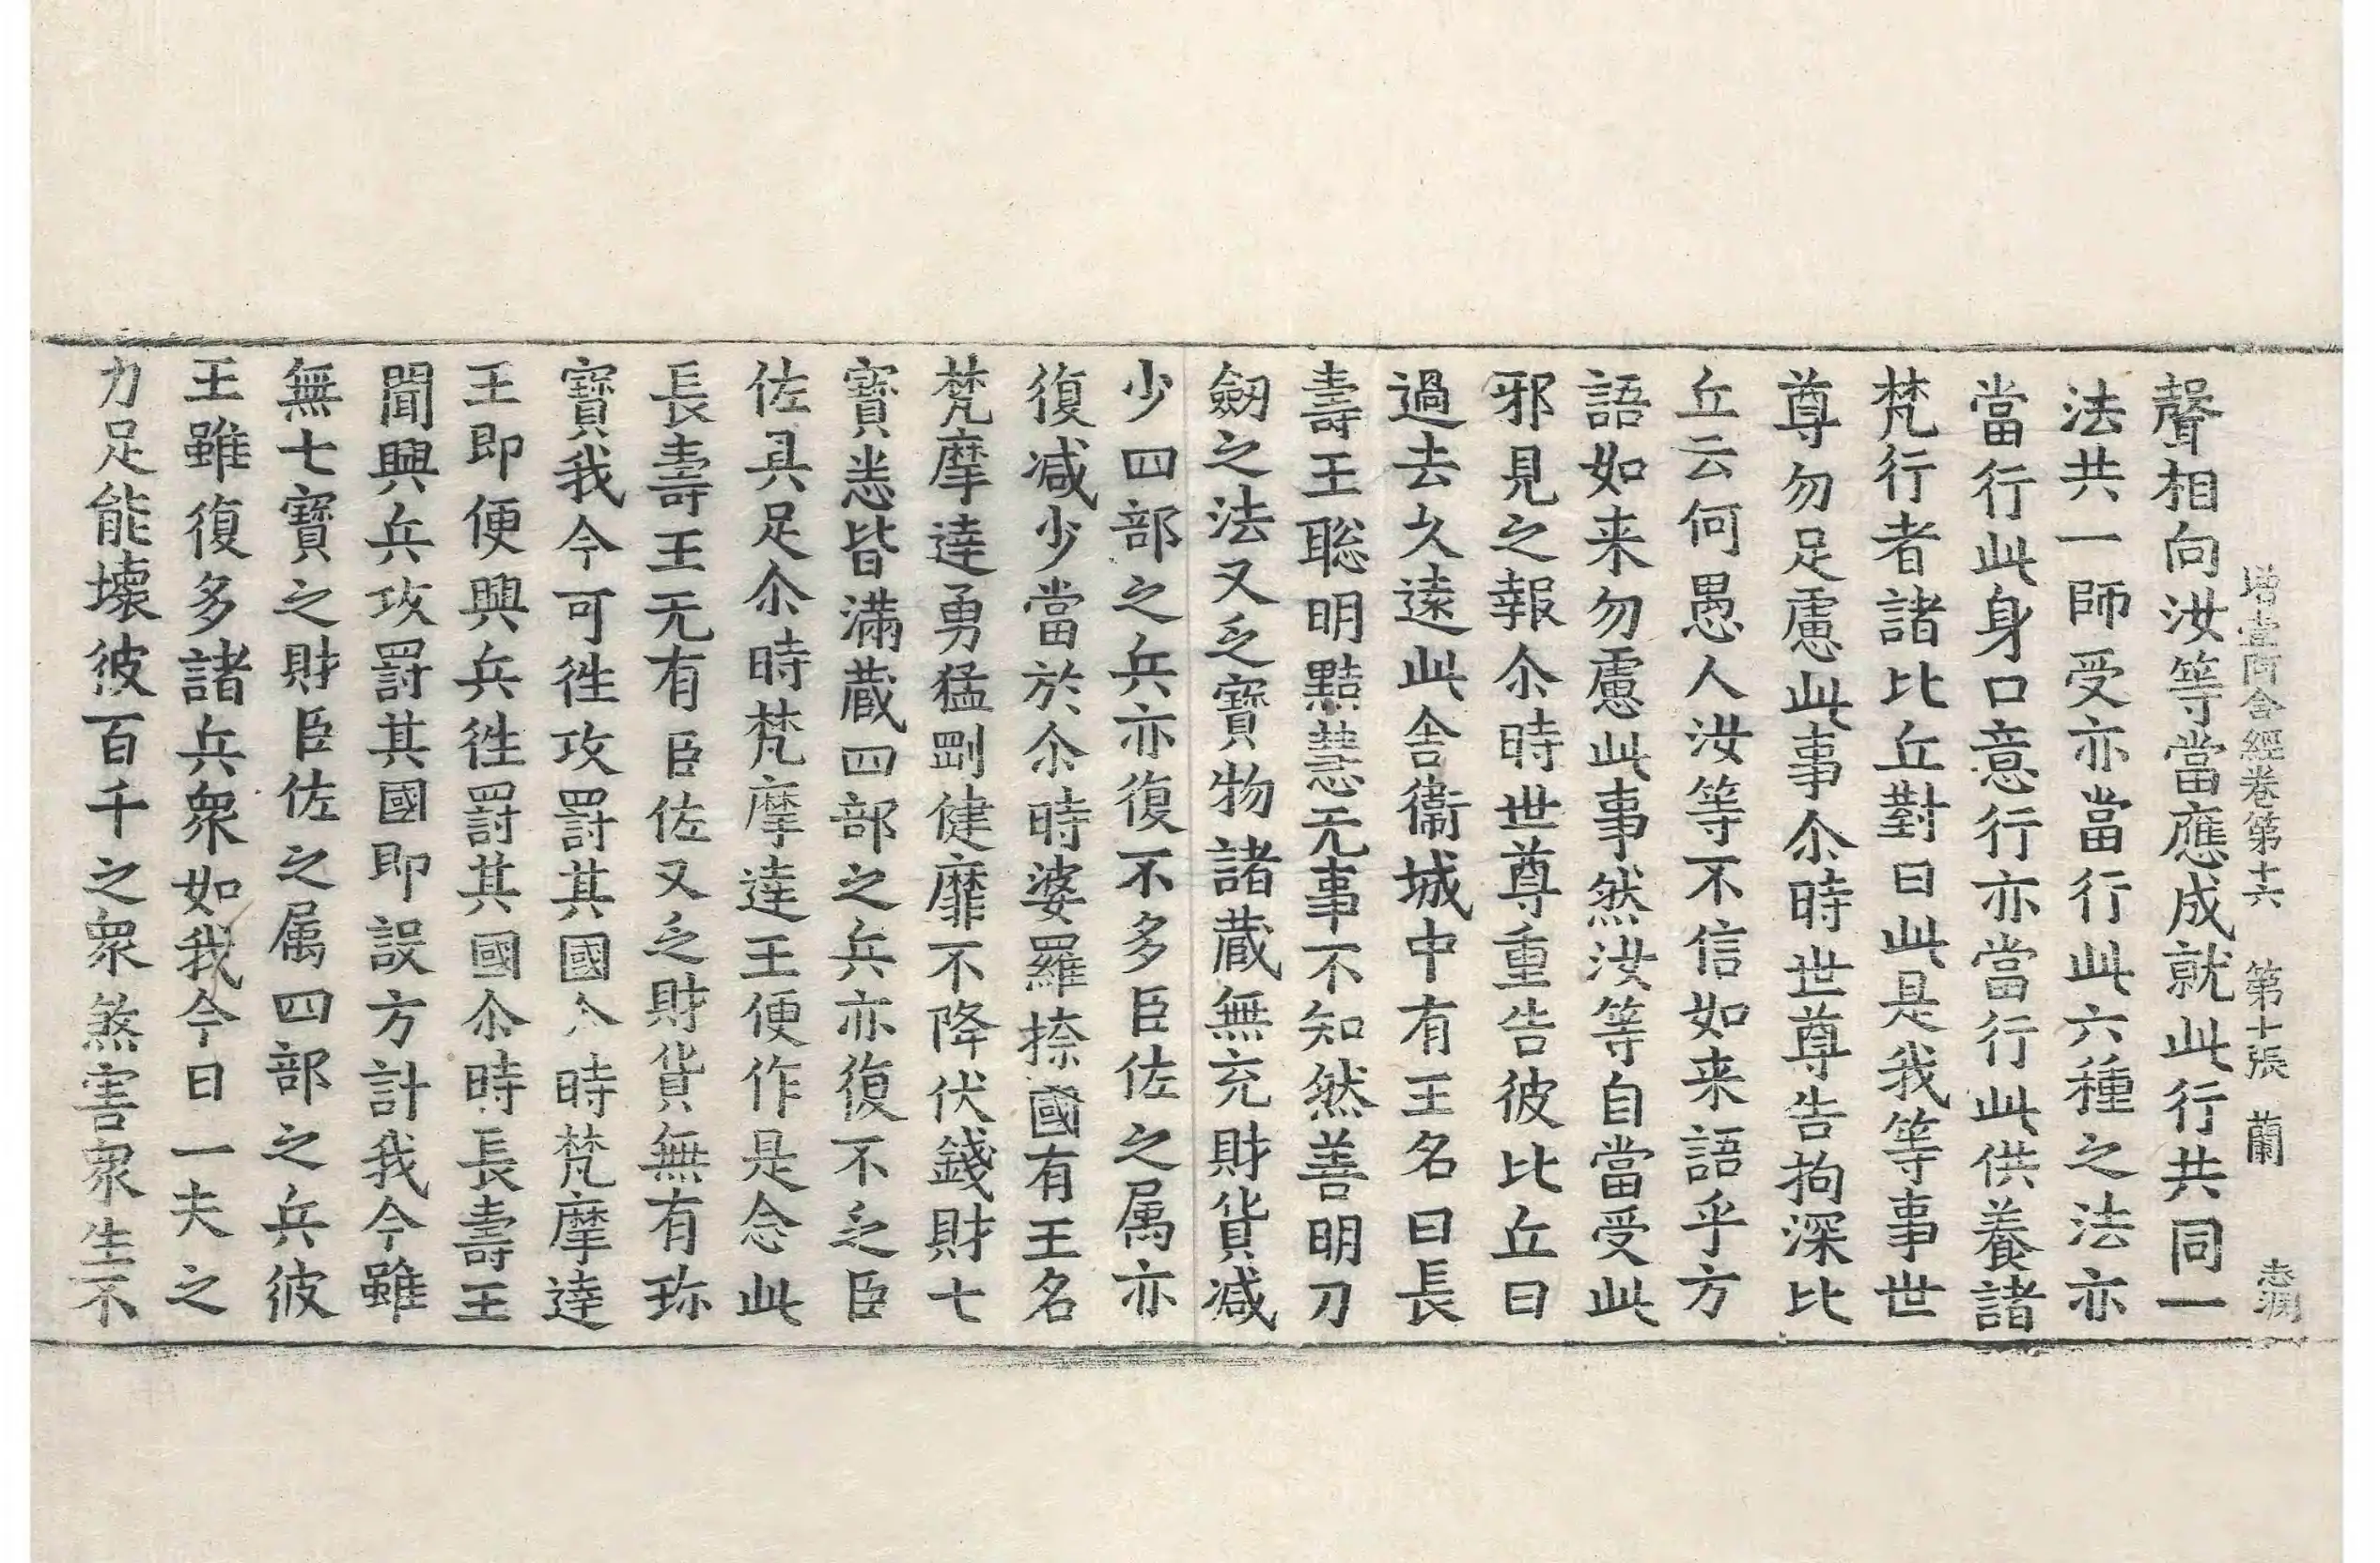 增壹阿含經卷第十六 第十張 蘭
聲相向汝等當應成就此行共同一
法共一師受亦當行此六種之法亦
當行此身口意行亦當行此供養諸
梵行者諸比丘對曰此是我等事世
尊勿足慮此事尒時世尊告拘深比
丘云何愚人汝等不信如来語乎方
語如来勿慮此事然汝等自當受此
邪見之報尒時世尊重告彼比丘曰
過去久遠此舎衞城中有王名曰長
壽王聡明黠慧无事不知然善明刀
劔之法又乏寶物諸蔵無充財貨减
少四部之兵亦復不多臣佐之属亦
復减少當於尒時婆羅捺國有王名
梵摩達勇猛剛健靡不降伏錢財七
寶悉皆滿蔵四部之兵亦復不乏臣
佐具足尒時梵摩達王便作是念此
長壽王无有臣佐又乏財貨無有珎
寶我今可徃攻罸其國尒時梵摩達
王即便興兵徃罸其國尒時長壽王
聞興兵攻罸其國即設方計我今雖
無七寶之財臣佐之属四部之兵彼
王雖復多諸兵衆如我今日一夫之
力足能壞彼百千之衆煞害衆生不